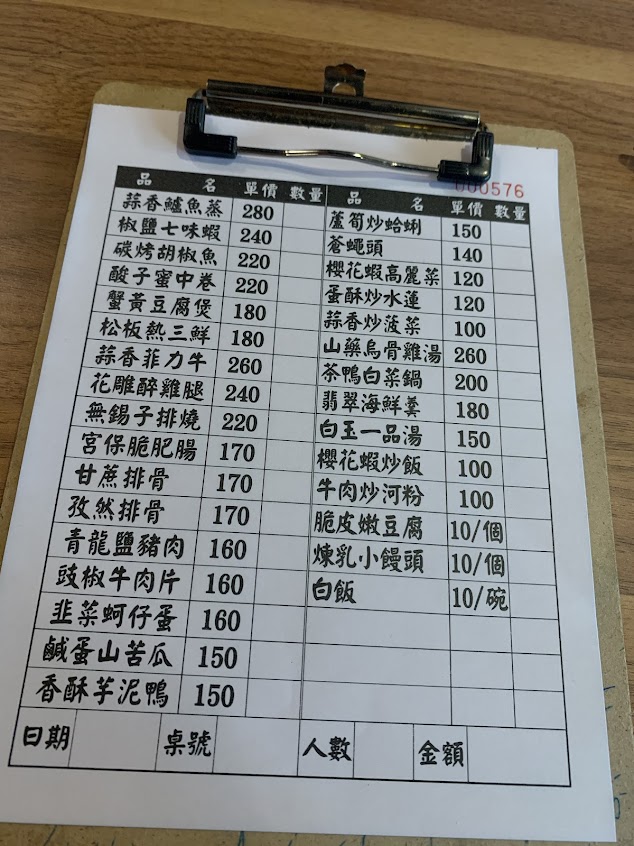 000576
品名 單價 數量
蒜香鱸魚蒸 280
椒鹽七味蝦 240
碳烤胡椒魚 220
酸子蜜中卷 220
蟹黃豆腐煲 180
松板熱三鮮 180
蒜香菲力牛 260
花雕醉雞腿 240
無錫子排燒 220
宮保脆肥腸 170
甘蔗排骨 170
孜然排骨 170
青龍鹽豬肉 160
豉椒牛肉片 160
韭菜蚵仔蛋 160
鹹蛋山苦瓜 150
香酥芋泥鴨 150
品名 單價 數量
蘆筍炒蛤蜊 150
蒼蠅頭 140
櫻花蝦高麗菜 120
蛋酥炒水蓮 120
蒜香炒菠菜 100
山藥烏骨雞湯 260
茶鴨白菜鍋 200
翡翠海鮮羹 180
白玉一品湯 150
櫻花蝦炒飯 100
牛肉炒河粉 100
脆皮嫩豆腐 10/個
煉乳小饅頭 10/個
白飯 10/碗
日期 桌號 人數 金額